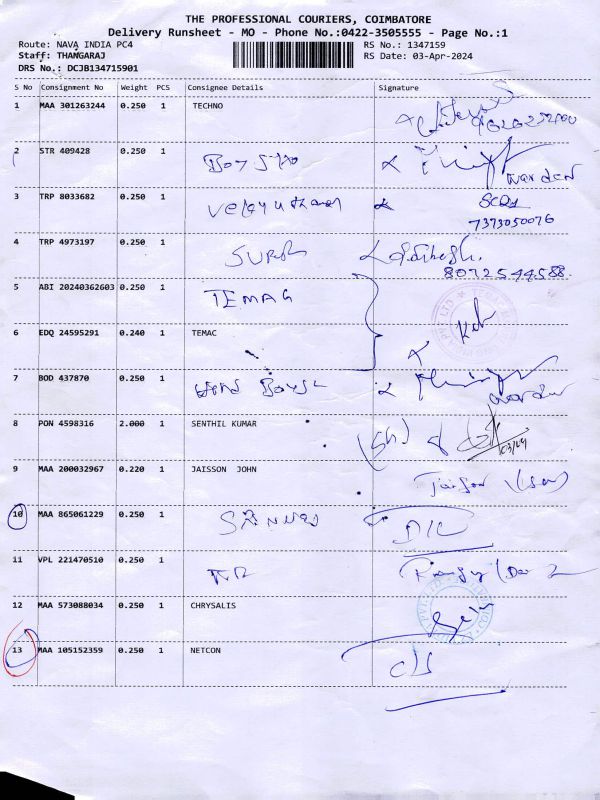 THE PROFESSIONAL COURIERS, COIMBATORE
Delivery Runsheet - MO - Phone No.:0422-3505555 - Page No.:1
Route: NAVA INDIA PC4 RS No.: 1347159
Staff: THANGARAJ RS Date: 03-Apr-2024
DRS No.: DCJB134715901
S No Consignment No Weight PCS Consignee Details Signature
1 MAA 301263244 0.250 1 TECHNO
2 STR 409428 0.250 1 Boys
warden
3 TRP 8033682 0.250 1 Velayutham
7373050076
4 TRP 4973197 0.250 1 SURESH
8072544588
5 ABI 20240362603 0.250 1 TEMAG
6 EDQ 24595291 0.240 1 TEMAC
7 BOD 437870 0.250 1
warden
8 PON 4598316 2.000 1 SENTHIL KUMAR
9 MAA 200032967 0.220 1 JAISSON JOHN
10 MAA 865061229 0.250 1 D/L
11 VPL 221470510 0.250 1
12 MAA 573088034 0.250 1 CHRYSALIS
13 MAA 105152359 0.250 1 NETCON